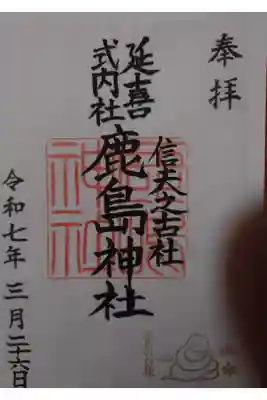 奉拝
信夫之古社
延喜式内社
鹿島神社
令和七年三月二十六日